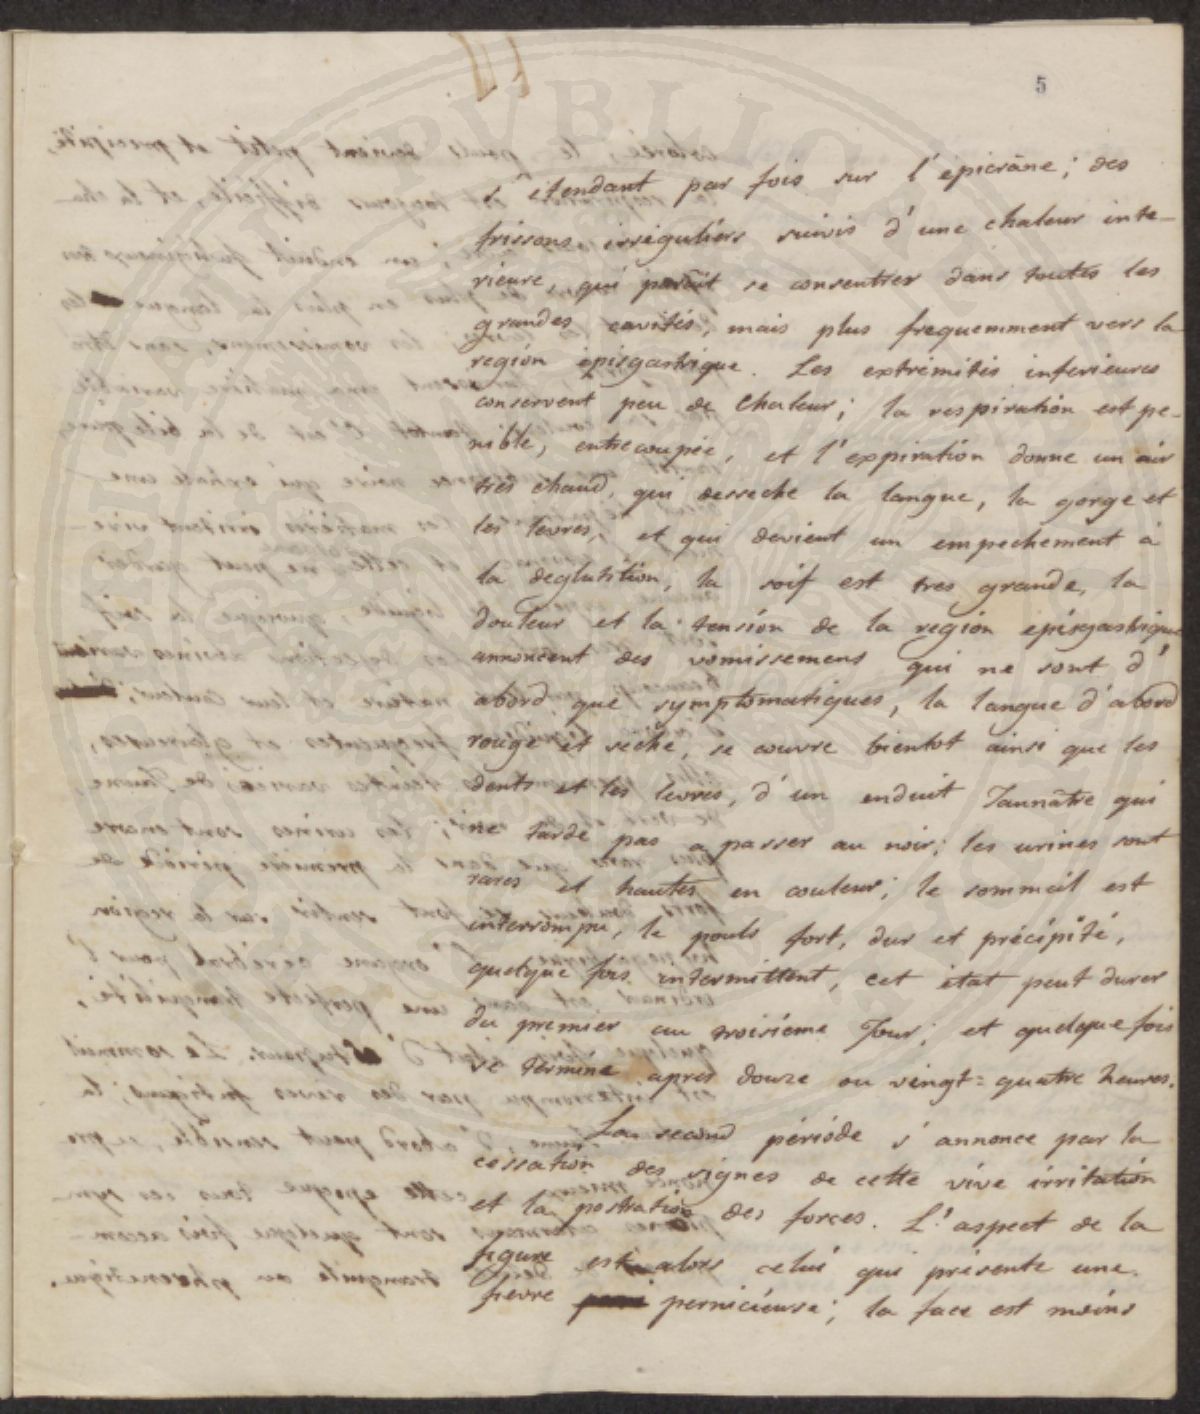 5
s'étendant par fois sur l'épicrâne; des
frissons irréguliers suivis d'une chaleur inte-
rieure, qui paroît se consentrer dans toutes les
grandes cavités, mais plus frequemment vers la
region épisgastrique. Les extrémités inferieures
conservent peu de chaleur; la respiration est pe-
nible, entrecoupée, et l'expiration donne un air
très chaud, qui desseche la langue, la gorge et
les levres, et qui devient un empechement à
la deglutition, la soif est tres grande, la
douleur et la tension de la region episgastrique
annoncent des vomissemens qui ne sont d'
abord que symptomatiques, la langue d'abord
rouge et seche, se couvre bientot ainsi que les
dents et les levres, d'un enduit Jaunâtre qui
ne tarde pas a passer au noir; les urines sont
rares et hautes en couleur; le sommeil est
interrompu, le pouls fort, dur et précipité,
quelque fois intermittent, cet état peut durer
du premier au troisième Jour; et quelque fois
se termine apres douze ou vingt=quatre heures.
La second période s'annonce par la
cessation des signes de cette vive irritation
et la postration des forces. L'aspect de la
figure est alors celui qui présente une
fievre pernicieuse; la face est moins